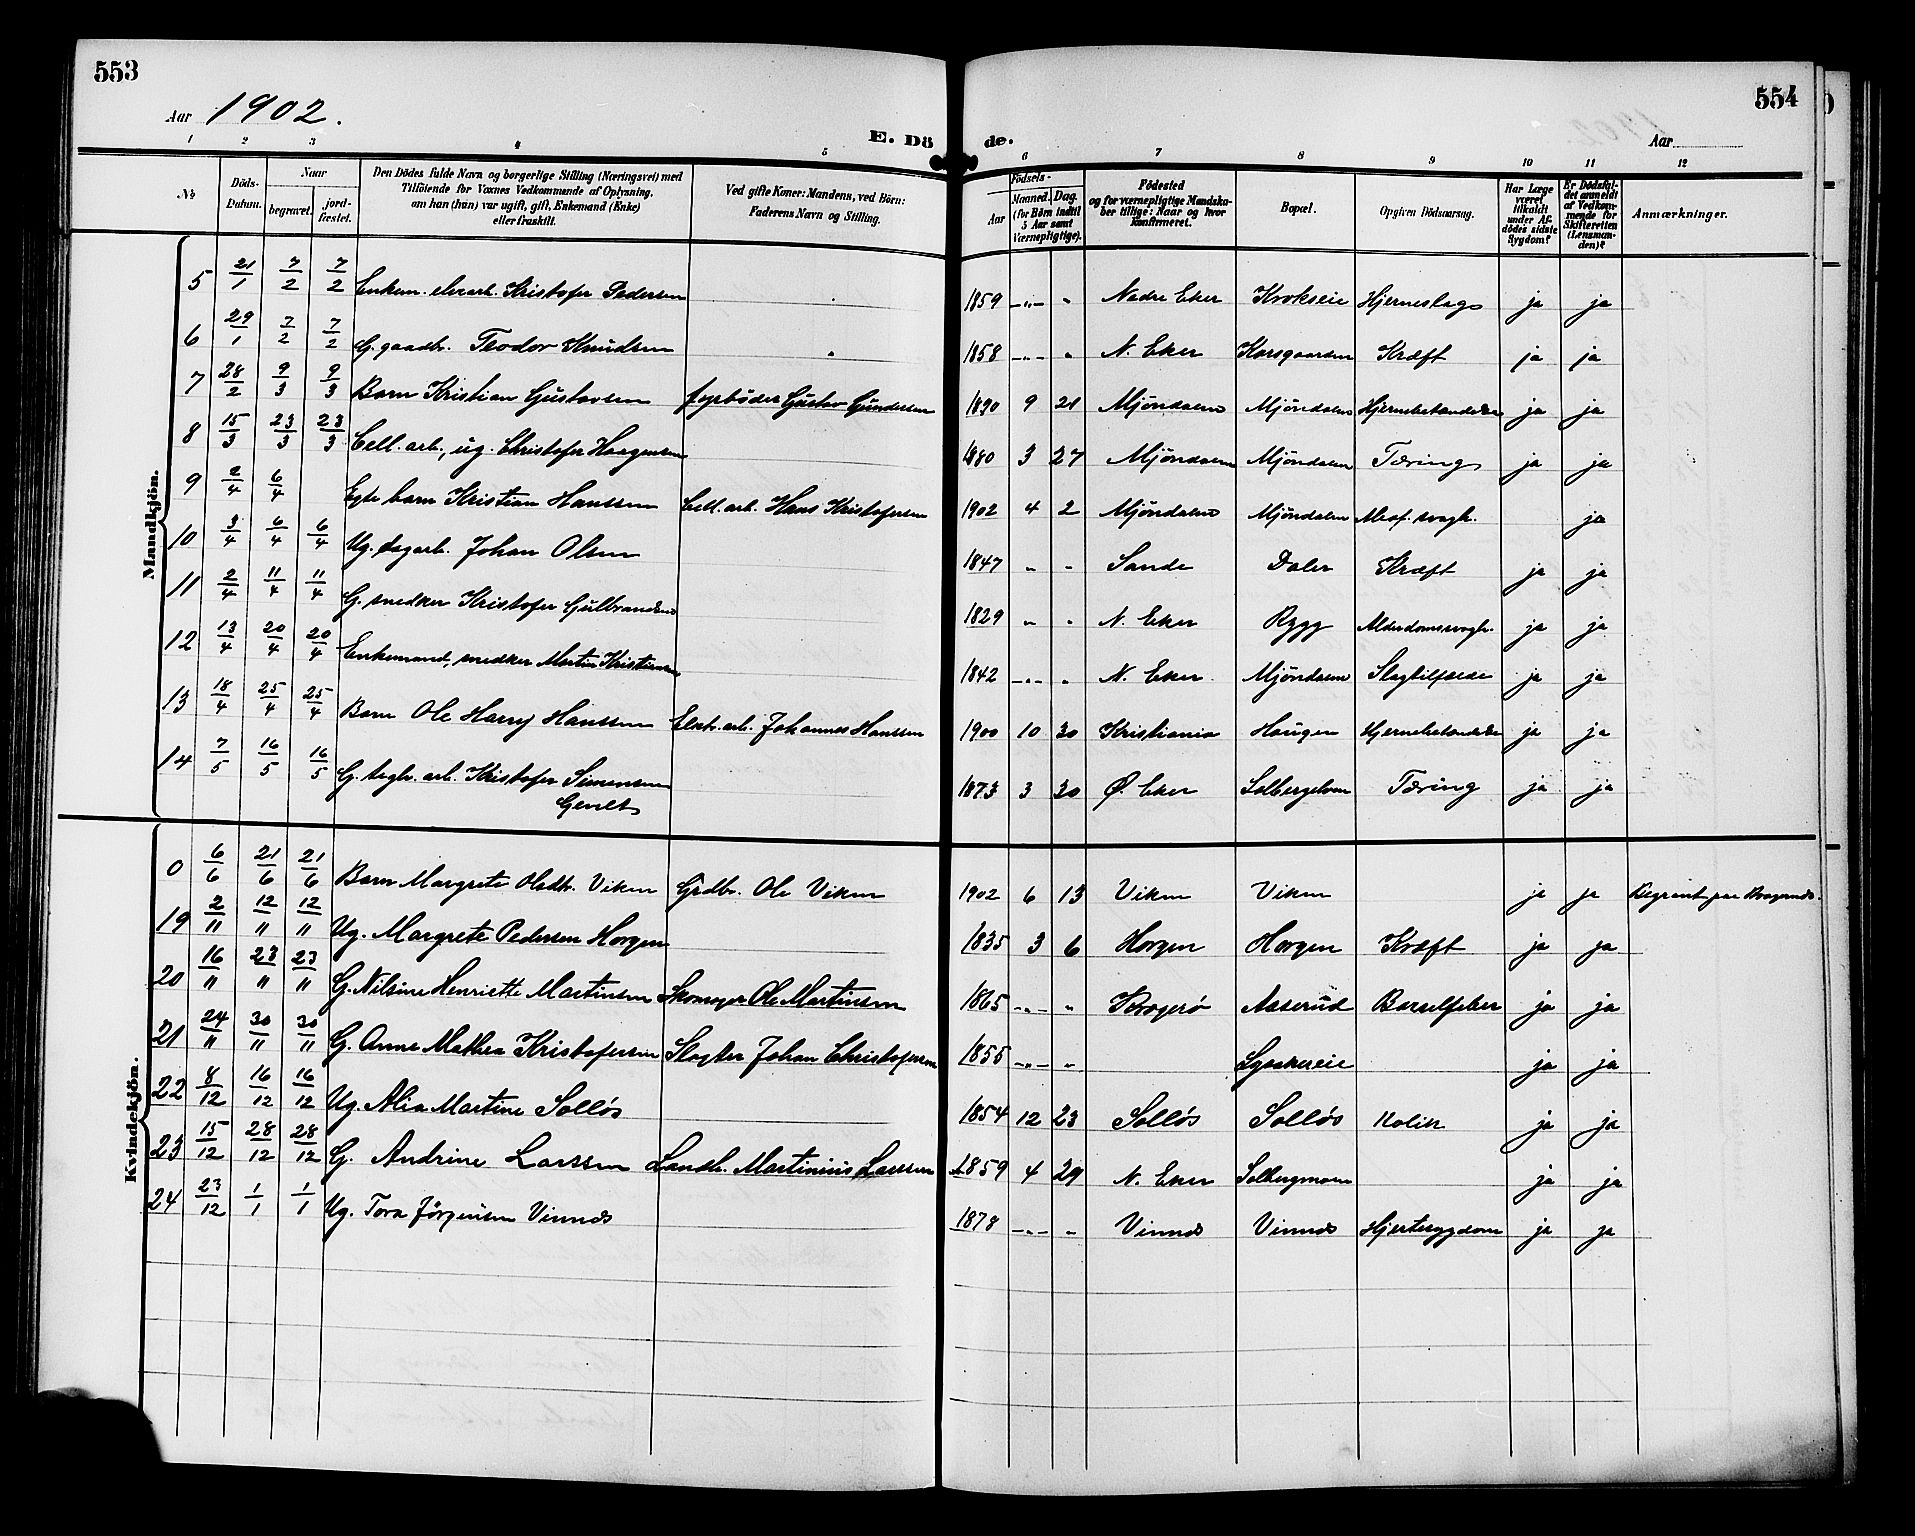 553
554
Aar 1902.
E. Dö de.
Aar
1 2 3 4 5 6 7 8 9 10 11 12
No
Döds-Datum.
Naar begravet. jord-fæstet.
Den Dödes fulde Navn og borgerlige Stilling (Næringsvei) med
Tilföiende for Voxnes Vedkommende af Oplysning,
om han (hun) var ugift, gift, Enkemand (Enke)
eller fraskilt.
Ved gifte Koner: Mandens, ved Börn:
Faderens Navn og Stilling.
Födsels-
Aar Maaned. Dag.
(for Börn indtil 5 Aar samt Værnepligtige).
Födested
og for værnepligtige Mandska-
ber tillige: Naar og hvor
konfirmeret.
Bopæl.
Opgiven Dödsaarsag.
Har Læge været tilkaldt under Af-dödes sidste Sygdom?
Er Dödsfal-det anmeldt af Vedkom-mende for Skifteretten (Lensman-den)?
Anmærkninger.
Mandkjön.
5 21/1 7/2 7/2 Enkem. elvearb. Kristofer Pedersen 1859 -"- " Nedre Eker Krokseie Hjerneslag ja ja
6 29/1 7/2 7/2 G. gaardbr. Teodor Knudsen 1858 -"- " N. Eker Korsgaarden Kræft ja ja
7 28/2 9/3 9/3 Barn Kristian Gustavsen fyrbøder Gustav Gundersen 1890 9 21 Mjöndalen Mjöndalen Hjernebetændelse ja ja
8 15/3 23/3 23/3 Cell. arb., ug. Christofer Haagensen 1880 3 27 Mjöndalen Mjöndalen Tæring ja ja
9 2/4 6/4 Egte barn Kristian Hanssen Cell. arb. Hans Kristofersen 1902 4 2 Mjöndalen Mjöndalen Medf. svagh. ja
10 3/4 6/4 6/4 Ug. dagarb. Johan Olsen 1847 " " Sande Daler Kræft ja ja
11 2/4 11/4 11/4 G. snedker Kristofer Gulbrandsen 1829 " " N. Eker Rygg Alderdomssvagh. ja ja
12 13/4 20/4 20/4 Enkemand, snedker Martin Kristiansen 1842 -"- " N. Eker Mjöndalen Slagtilfælde ja ja
13 18/4 25/4 25/4 Barn Ole Harry Hanssen Elektr. arb. Johannes Hanssen 1900 10 30 Kristiania Haugen Hjernebetændelse ja ja
14 7/5 16/5 16/5 G. teglv. arb. Kristofer Simensen 1873 3 30 Ø. Eker Solbergelven Tæring ja ja
Kvindekjön.
0 6/6 21/6 21/6 Barn Margrete Olsdtr. Viken Grdbr. Ole Viken 1902 6 13 Viken Viken ja ja Begravet paa Bragernæs.
19 2/11 12/11 12/11 Ug. Margrete Pedersen Horgen 1835 3 6 Horgen Horgen Kræft ja ja
20 16/11 23/11 23/11 G. Nilsine Henriette Martinsen Skomager Ole Martinsen 1865 -"- " Kragerø Aaserud Barselfeber ja ja
21 24/11 30/11 30/11 G. Anne Mathea Kristofersen Slagter Johan Christofersen 1855 -"- " ja ja
22 8/12 16/12 16/12 Ug. Alia Martine Solløs 1854 12 23 Solløs Solløs Kolik ja ja
23 15/12 28/12 28/12 G. Andrine Larssen Landh. Martinius Larssen 1859 4 29 N. Eker Solbergmoen ja ja
24 23/12 1/1 1/1 Ug. Tora Jörgensen Vinnæs 1878 -"- " Vinnæs Vinnæs Hjertesygdom ja ja